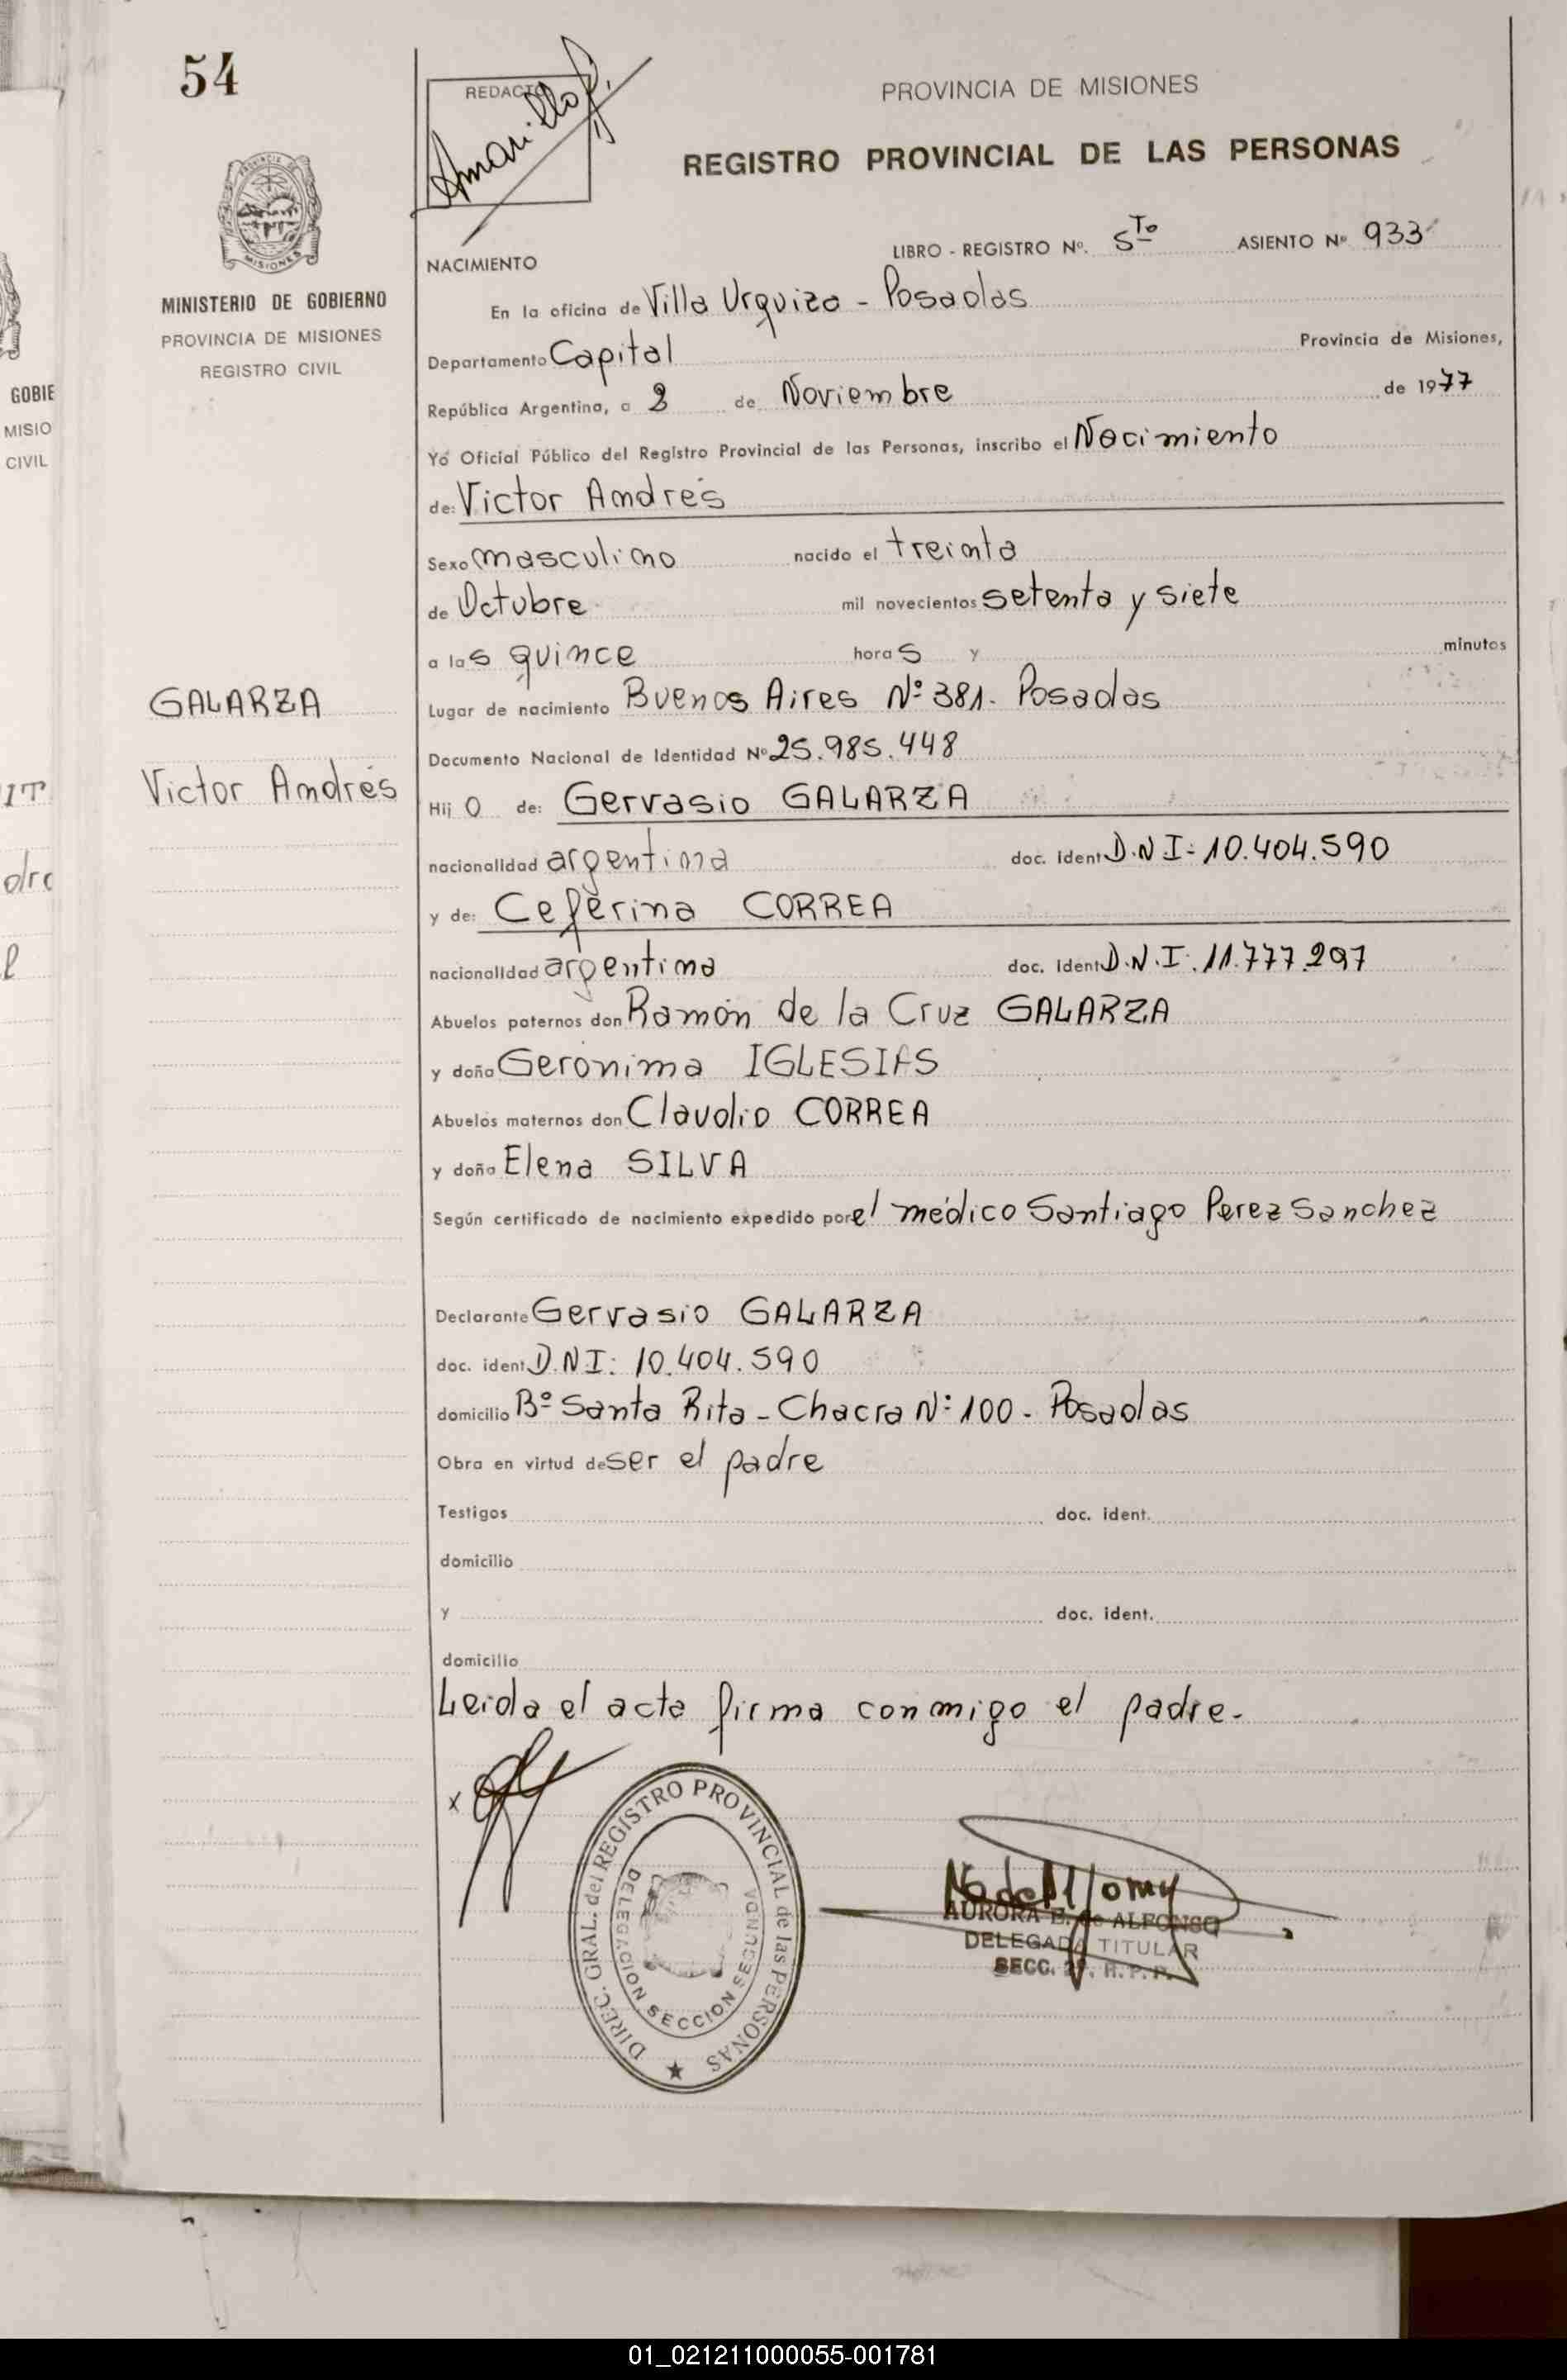 54
REDACTO
Amarillo
PROVINCIA DE MISIONES
REGISTRO PROVINCIAL DE LAS PERSONAS
LIBRO - REGISTRO Nº. 5to ASIENTO Nº 933
NACIMIENTO
MINISTERIO DE GOBIERNO
PROVINCIA DE MISIONES
REGISTRO CIVIL
En la oficina de Villa Urquiza - Posadas
Departamento Capital Provincia de Misiones,
República Argentina, a 2 de Noviembre de 1977
Yo Oficial Público del Registro Provincial de las Personas, inscribo el Nacimiento
de: Victor Andrés
Sexo masculino nacido el treinta
de Octubre mil novecientos setenta y siete
a las quince horas y minutos
GALARZA
Lugar de nacimiento Buenos Aires Nº 381. Posadas
Documento Nacional de Identidad Nº 25.985.448
Victor Andrés
Hijo de: Gervasio GALARZA
nacionalidad argentina doc. ident. D.N.I: 10.404.590
y de: Ceferina CORREA
nacionalidad argentina doc. ident. D.N.I. 11.777.297
Abuelos paternos don Ramón de la Cruz GALARZA
y doña Gerónima IGLESIAS
Abuelos maternos don Claudio CORREA
y doña Elena SILVA
Según certificado de nacimiento expedido por el médico Santiago Perez Sanchez
Declarante Gervasio GALARZA
doc. ident. D.N.I: 10.404.590
domicilio Bº Santa Rita - Chacra Nº 100 - Posadas
Obra en virtud de ser el padre
Testigos doc. ident.
domicilio
y doc. ident.
domicilio
Leida el acta firma conmigo el padre.
x
DIREC. GRAL. del REGISTRO PROVINCIAL de las PERSONAS
DELEGACION SECCION SEGUNDA
AURORA B. de ALFONSO
DELEGADA TITULAR
SECC. 2ª. R. P. P.
GOBIE
MISIO
CIVIL
01_021211000055-001781